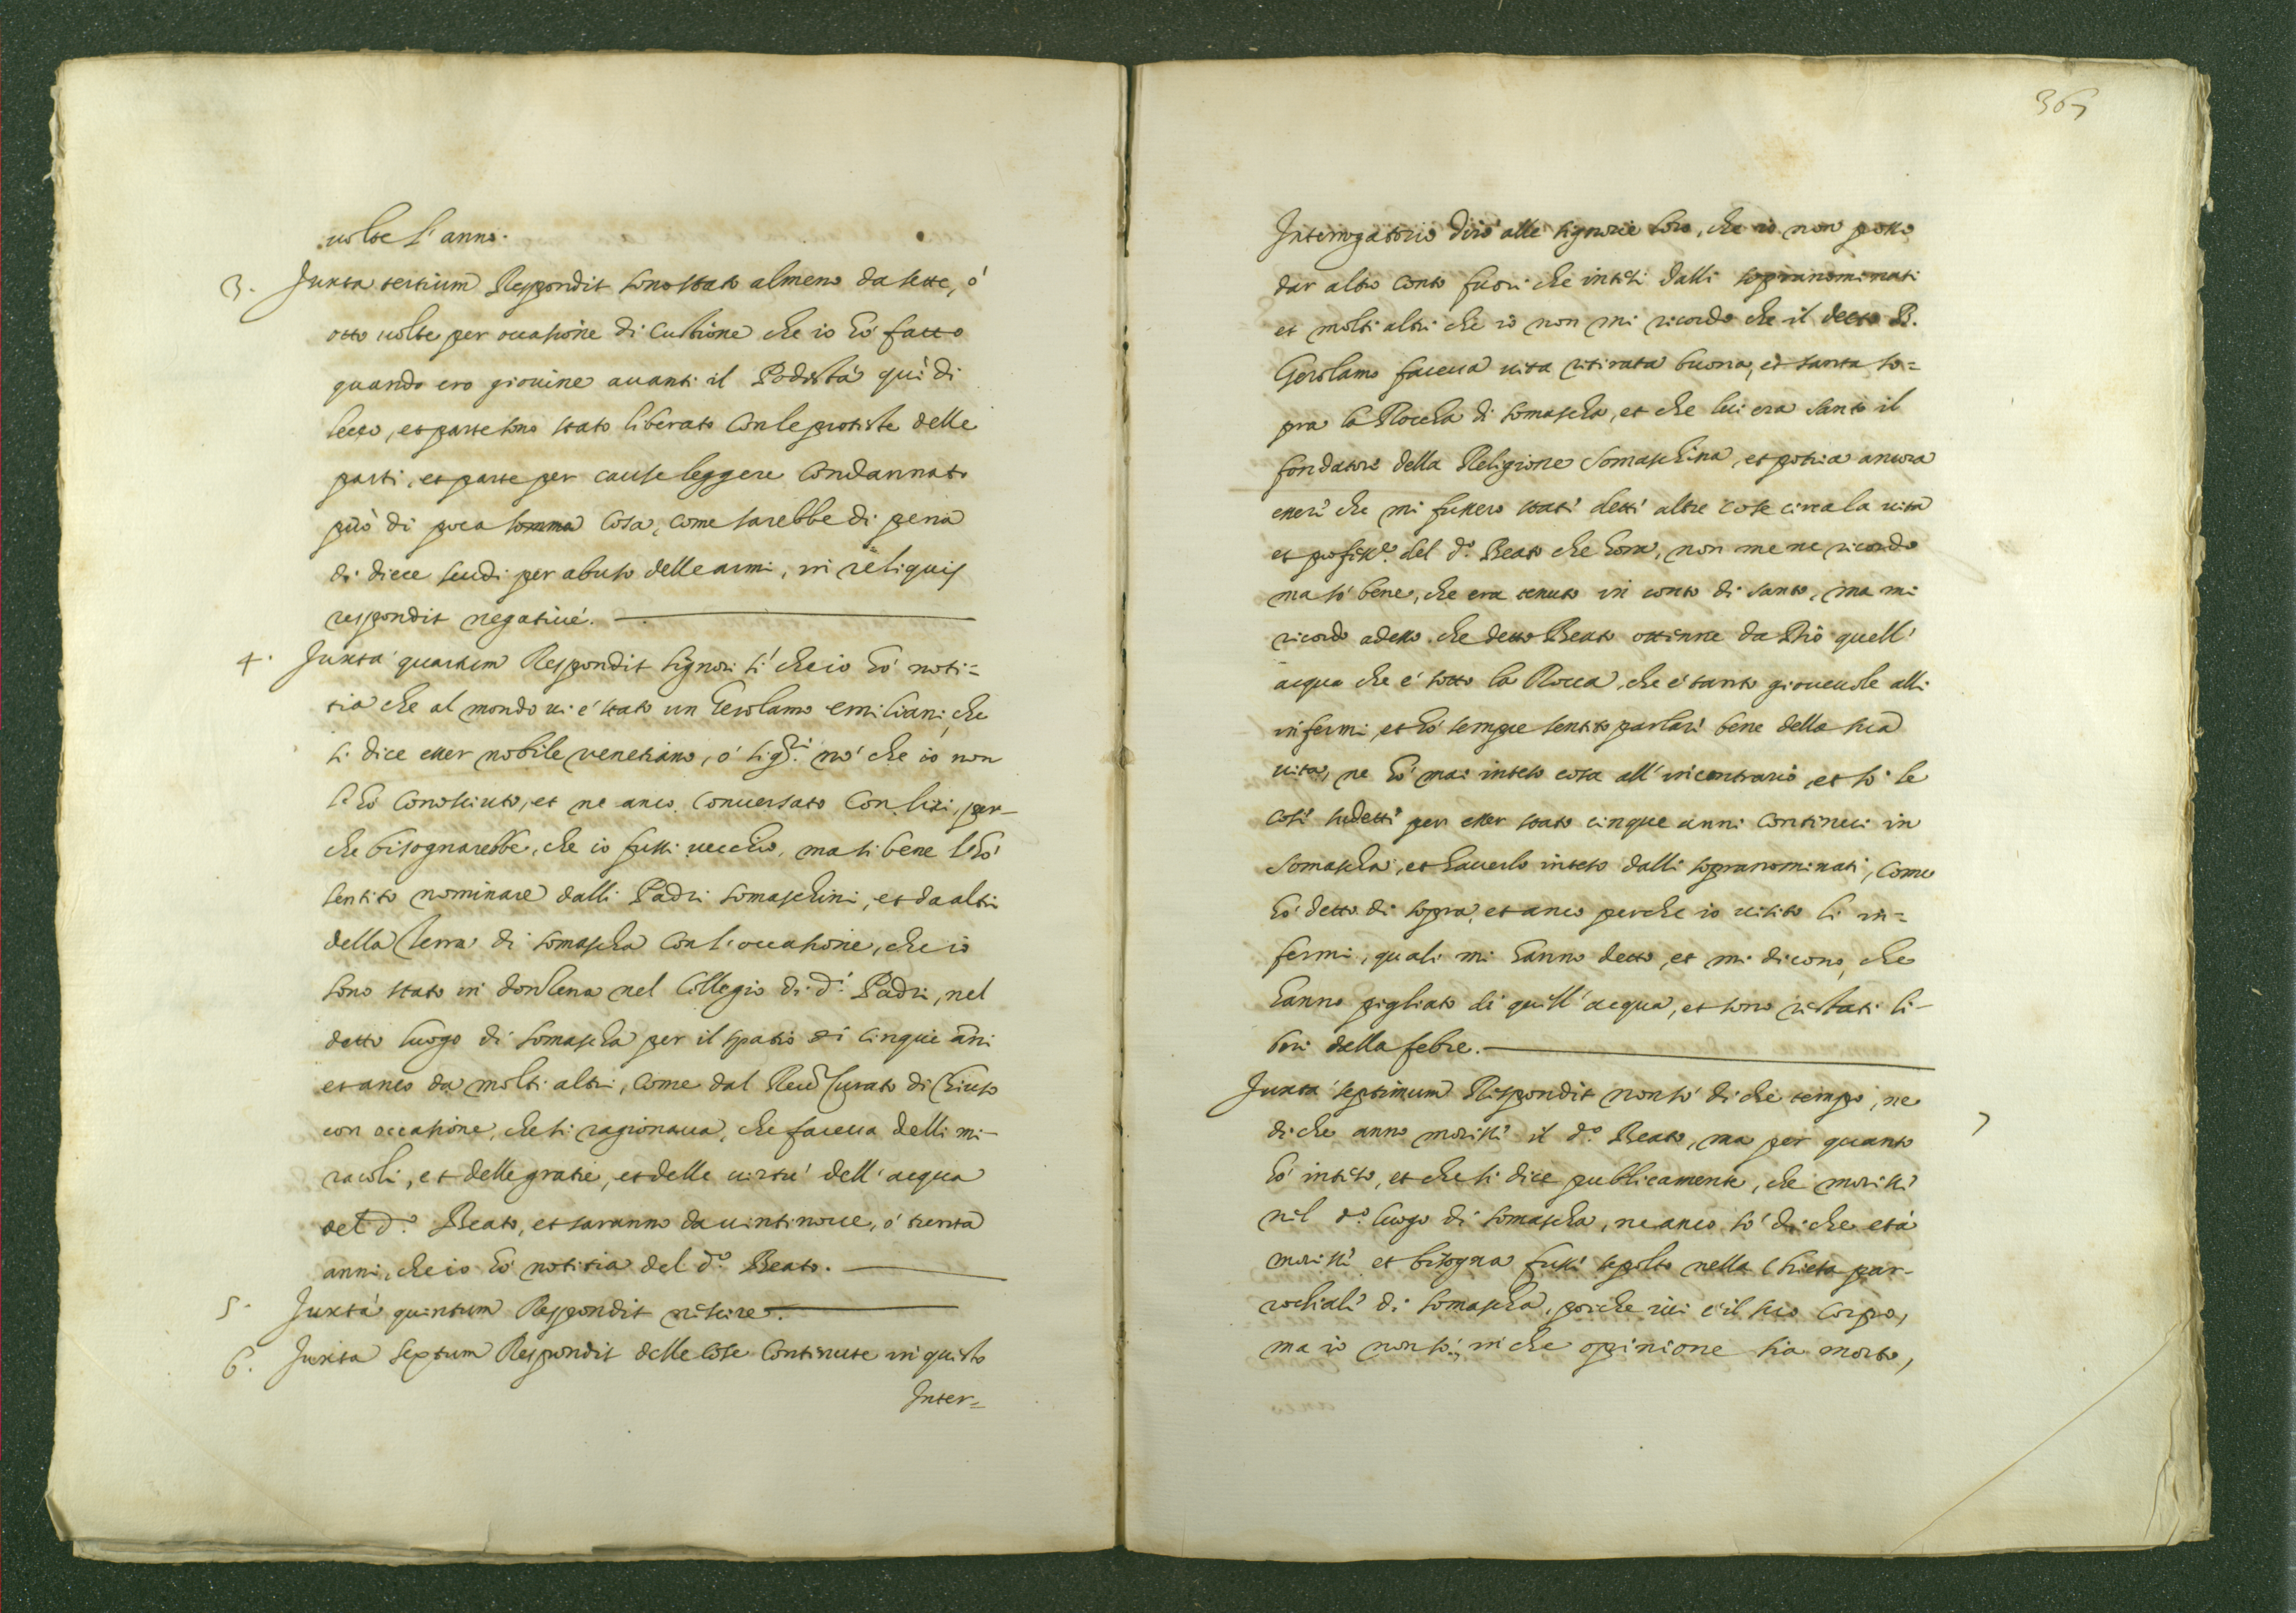 uolte l'anno.
3. Juxta tertium Respondit sono stato almeno da sette, ó
otto uolte per occasione di custione che io hó fatto
quando ero giouine auanti il Podestá quì di
Lecco, et parte sono stato liberato con le proteste delle
parti, et parte per cause leggere condannato
però di poca somma cosa, come sarebbe di pena
di diece scudi per abuso delle armi, in reliquis
respondit negatiué.
4. Juxta quartum Respondit signori sì che io hó noti=
tia che al mondo ui é stato un Gerolamo emiliani, che
si dice esser nobile venetiano, ó sig.ri nó che io non
l'hó conosciuto, et ne anco conuersato con lui, per-
che bisognarebbe, che io fussi uecchio, ma si bene l'hó
sentito nominare dalli Padri somaschini, et da altri
della Terra di somascha con l'occasione, che io
sono stato in donzena nel Collegio di d.i Padri, nel
detto luogo di somascha per il spatio di cinque ani
et anco da molti altri, come dal Reu.do Curato di Chiuso
con occasione, che si ragionaua, che faceua delli mi-
racoli, et delle gratie, et delle uirtú dell'acqua
del d.o Beato, et saranno da uintinoue, ó trenta
anni, che io hó notitia del d.o Beato.
5. Juxta quintum Respondit nescire.
6. Juxta sextum Respondit delle cose continute in questo
Inter=
367
Interrogatorio diró alle signorie loro, che io non posso
dar altro conto fuori che intesi dalli sopranominati
et molti altri che io non mi ricordo che il detto B.
Gerolamo faceua uita ritirata buona, et santa so=
pra la Roccha di somascha, et che lui era santo il
fondatore della Religione Somaschina, et potria ancora
esseri che mi fussero stati detti altre cose circa la uita
et profess.e del d.o Beato che hora, non me ne ricordo
ma só bene, che era tenuto in conto di santo, ma mi
ricordo adesso che detto Beato ottenne da Dio quell'
acqua che é sotto la Rocca, che é tanto gioueuole alli
infermi, et hó sempre sentito parlari bene della sua
uita, ne hó mai inteso cosa all'incontrario et só le
cose sudetti per esser stato cinque anni continui in
Somascha, et hauerlo inteso dalli sopranominati, come
hó detto di sopra, et anco perche io uisito li in=
fermi, quali mi hanno detto, et mi dicono, che
hanno pigliato di quell'acqua, et sono restati li-
beri dalla febre.
Juxta septimum Respondit non só di che tempo, ne
7
di che anno morissi il d.o Beato, ma per quanto
hó inteso, et che si dice publicamente, che morissi
nel d.o luogo di somascha, ne anco só di che etá
morissi et bisogna fussi sepolto nella Chiesa par-
rochiali di somascha, poiche iui é il suo corpo,
ma io non só, in che opinione sia morto,